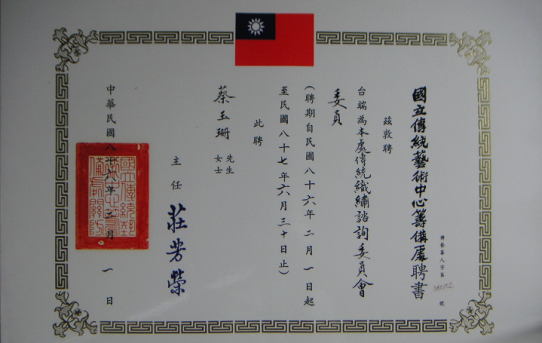 國立傳統藝術中心籌備處聘書
茲敦聘
台端為本處傳統織繡諮詢委員會
委員
（聘期自民國八十六年二月一日起
至民國八十七年六月三十日止）
此聘
蔡玉珊 先生
女士
主任 莊芳榮
中華民國八十六年二月一日